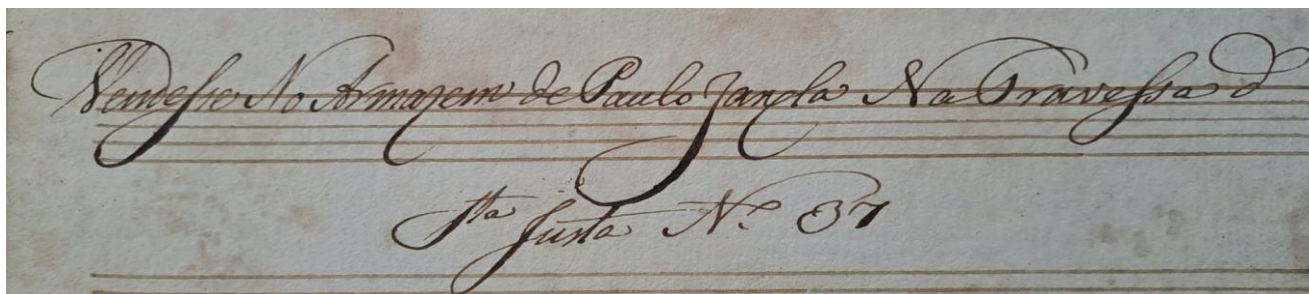 Vendesse No Armazem de Paulo Zancla Na Travessa d
Sta Justa Nº 37